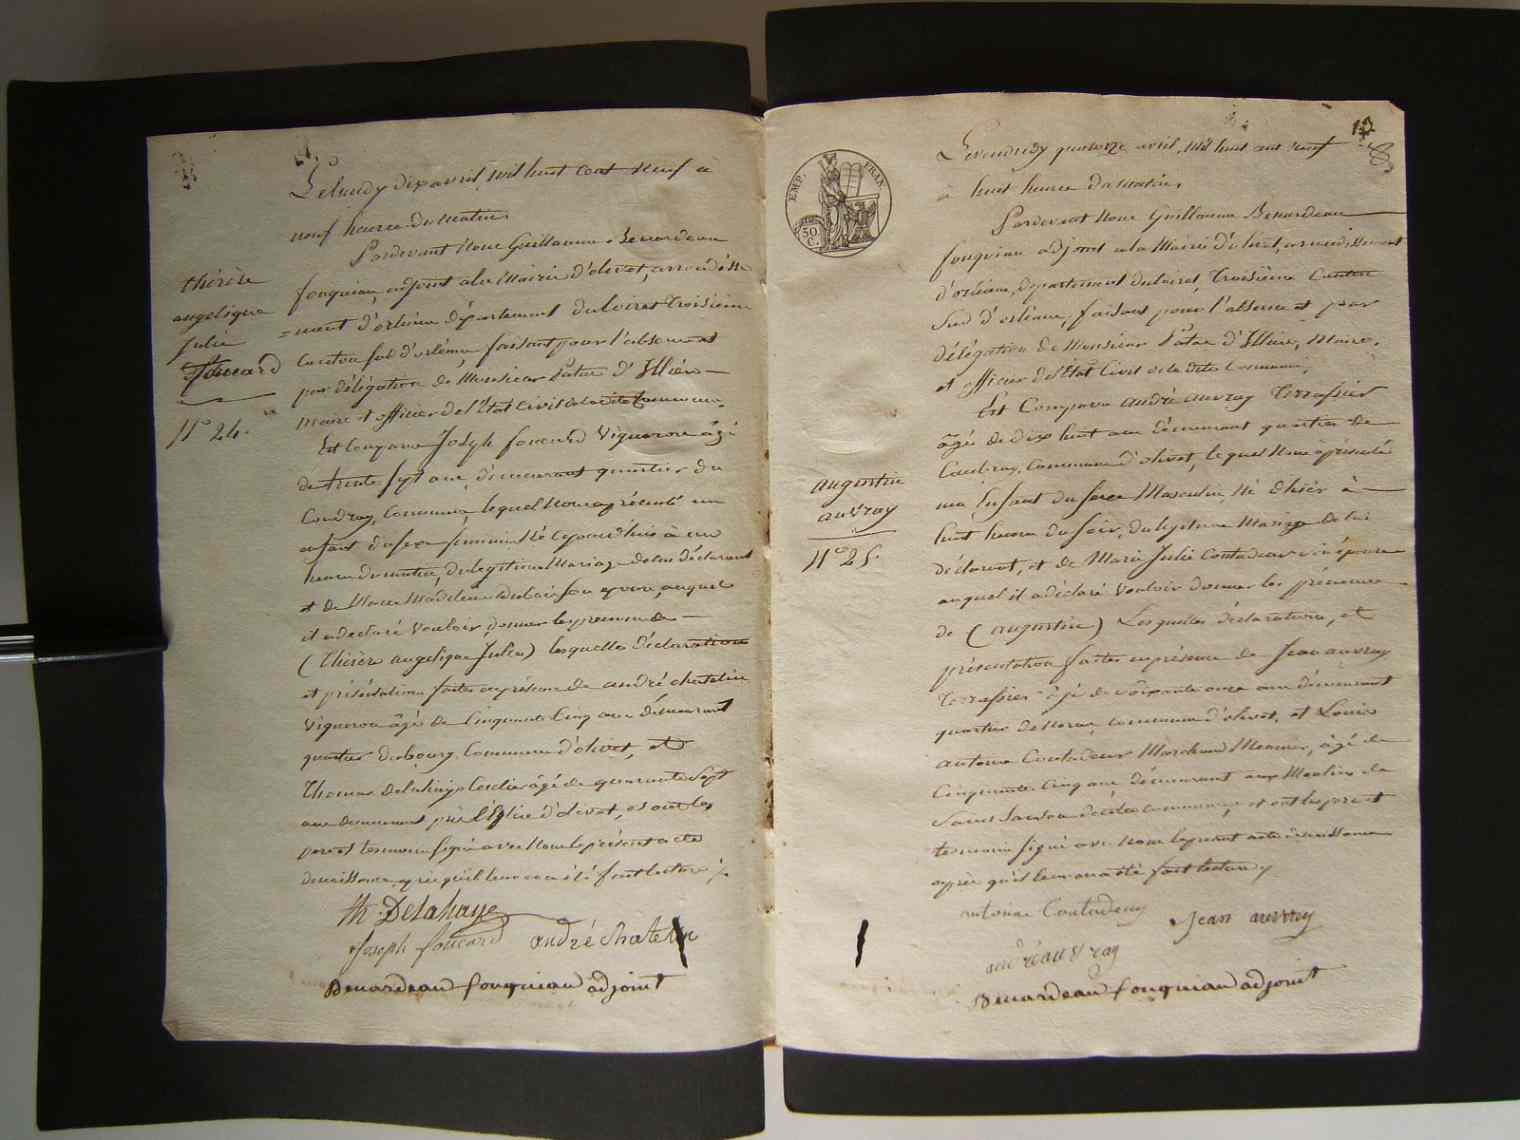 Le lundy dix avril, mil huit cent neuf à
neuf heures du matin,
Pardevant Nous Guillaume Benardeau
fouquiau, adjoint a la Mairie d'olivet, arrondisse
=ment d'orléans département du loiret Troisième
Canton sud d'orléans, faisant pour l'absence et
par délégation de Monsieur Patas d'Illiers
maire et officier de l'Etat Civil de la dite Commune.
Est Comparu Joseph foucard Vigneron âgé
de trente sept ans, demeurant quartier du
Coudray, Commune, lequel Nous a présenté un
enfant du sexe feminin Né ce jourd'huis à une
heure du matin, du légitime Mariage de lui déclarant
et de Marie Madeleine Dubois son épouse, auquel
il a declaré Vouloir donner les prenoms de
(Thérèse angelique Julie) lesquelles déclarations
et présentation faites en présence de andré chatelin
Vigneron âgé de Cinquante Cinq ans demeurant
quartier du bourg Commune d'olivet, et
Thomas Delahaye âgé de quarante Sept
ans demeurant près l'Eglise d'olivet, et ont les
pere et temoins signé avec Nous le présent acte
de naissance après qu'il leur en a été fait lecture ./.
th. Delahaye
Joseph foucard andré chatelin
Benardeau fouquiau adjoint
thérèse
angelique
Julie
foucard
N.° 24.
EMP. FRAN.
50 C.
Le vendredy quatorze avril, mil huit cent neuf
à huit heures du matin,
Pardevant Nous Guillaume Benardeau
fouquiau adjoint a la Mairie d'olivet, arrondissement
d'orléans, département du loiret, Troisième Canton
Sud d'orléans, faisant pour l'absence et par
délégation de Monsieur Patas d'Illiers, Maire,
et officier de l'Etat Civil de la dite Commune,
Est Comparu andré auvray Terrassier
âgé de dix huit ans demeurant quartier de
Commune d'olivet, lequel Nous a présenté
un Enfant du sexe Masculin, Né d'hier à
huit heures du soir, du légitime Mariage de lui
déclarant, et de Marie Julie Coutadeur son épouse
auquel il a déclaré Vouloir donner les prenoms
de (augustin) Lesquelles déclarations, et
présentation faites en présence de Jean auvray
Terrassier âgé de soixante onze ans demeurant
quartier de commune d'olivet, et Louis
antoine Coutadeur Marchand Meunier, âgé de
Cinquante Cinq ans demeurant aux Moulins de
Saint Samson de cette commune, et ont les pere et
temoins signé avec nous le présent acte de naissance
après qu'il leur en a été fait lecture ./.
antoine Coutadeur
Jean auvray
andré auvray
Benardeau fouquiau adjoint
augustin
auvray
N.° 25.